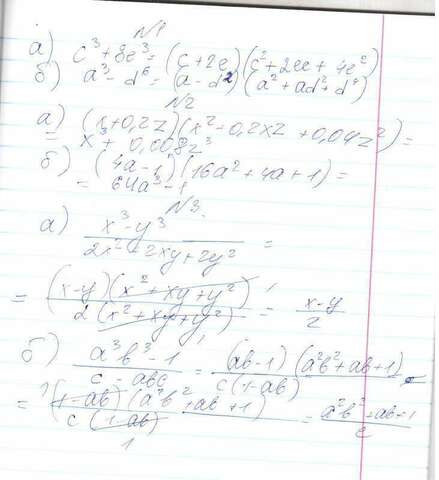 N1
а) c³ + 8e³ = (c + 2e)(c² + 2ec + 4e²)
б) a³ - d⁶ = (a - d²)(a² + ad² + d⁴)
N2
а) (x + 0,2z)(x² - 0,2xz + 0,04z²) =
= x³ + 0,008z³
б) (4a - 1)(16a² + 4a + 1) =
= 64a³ - 1
N3.
а) (x³ - y³) / (2x² + 2xy + 2y²) =
= (x - y)(x² + xy + y²) / 2(x² + xy + y²) = (x - y) / 2
б) (a³b³ - 1) / (c - abc) = (ab - 1)(a²b² + ab + 1) / c(1 - ab) =
= (1 - ab)(a²b² + ab + 1) / c(1 - ab) = (a²b² + ab + 1) / c
1